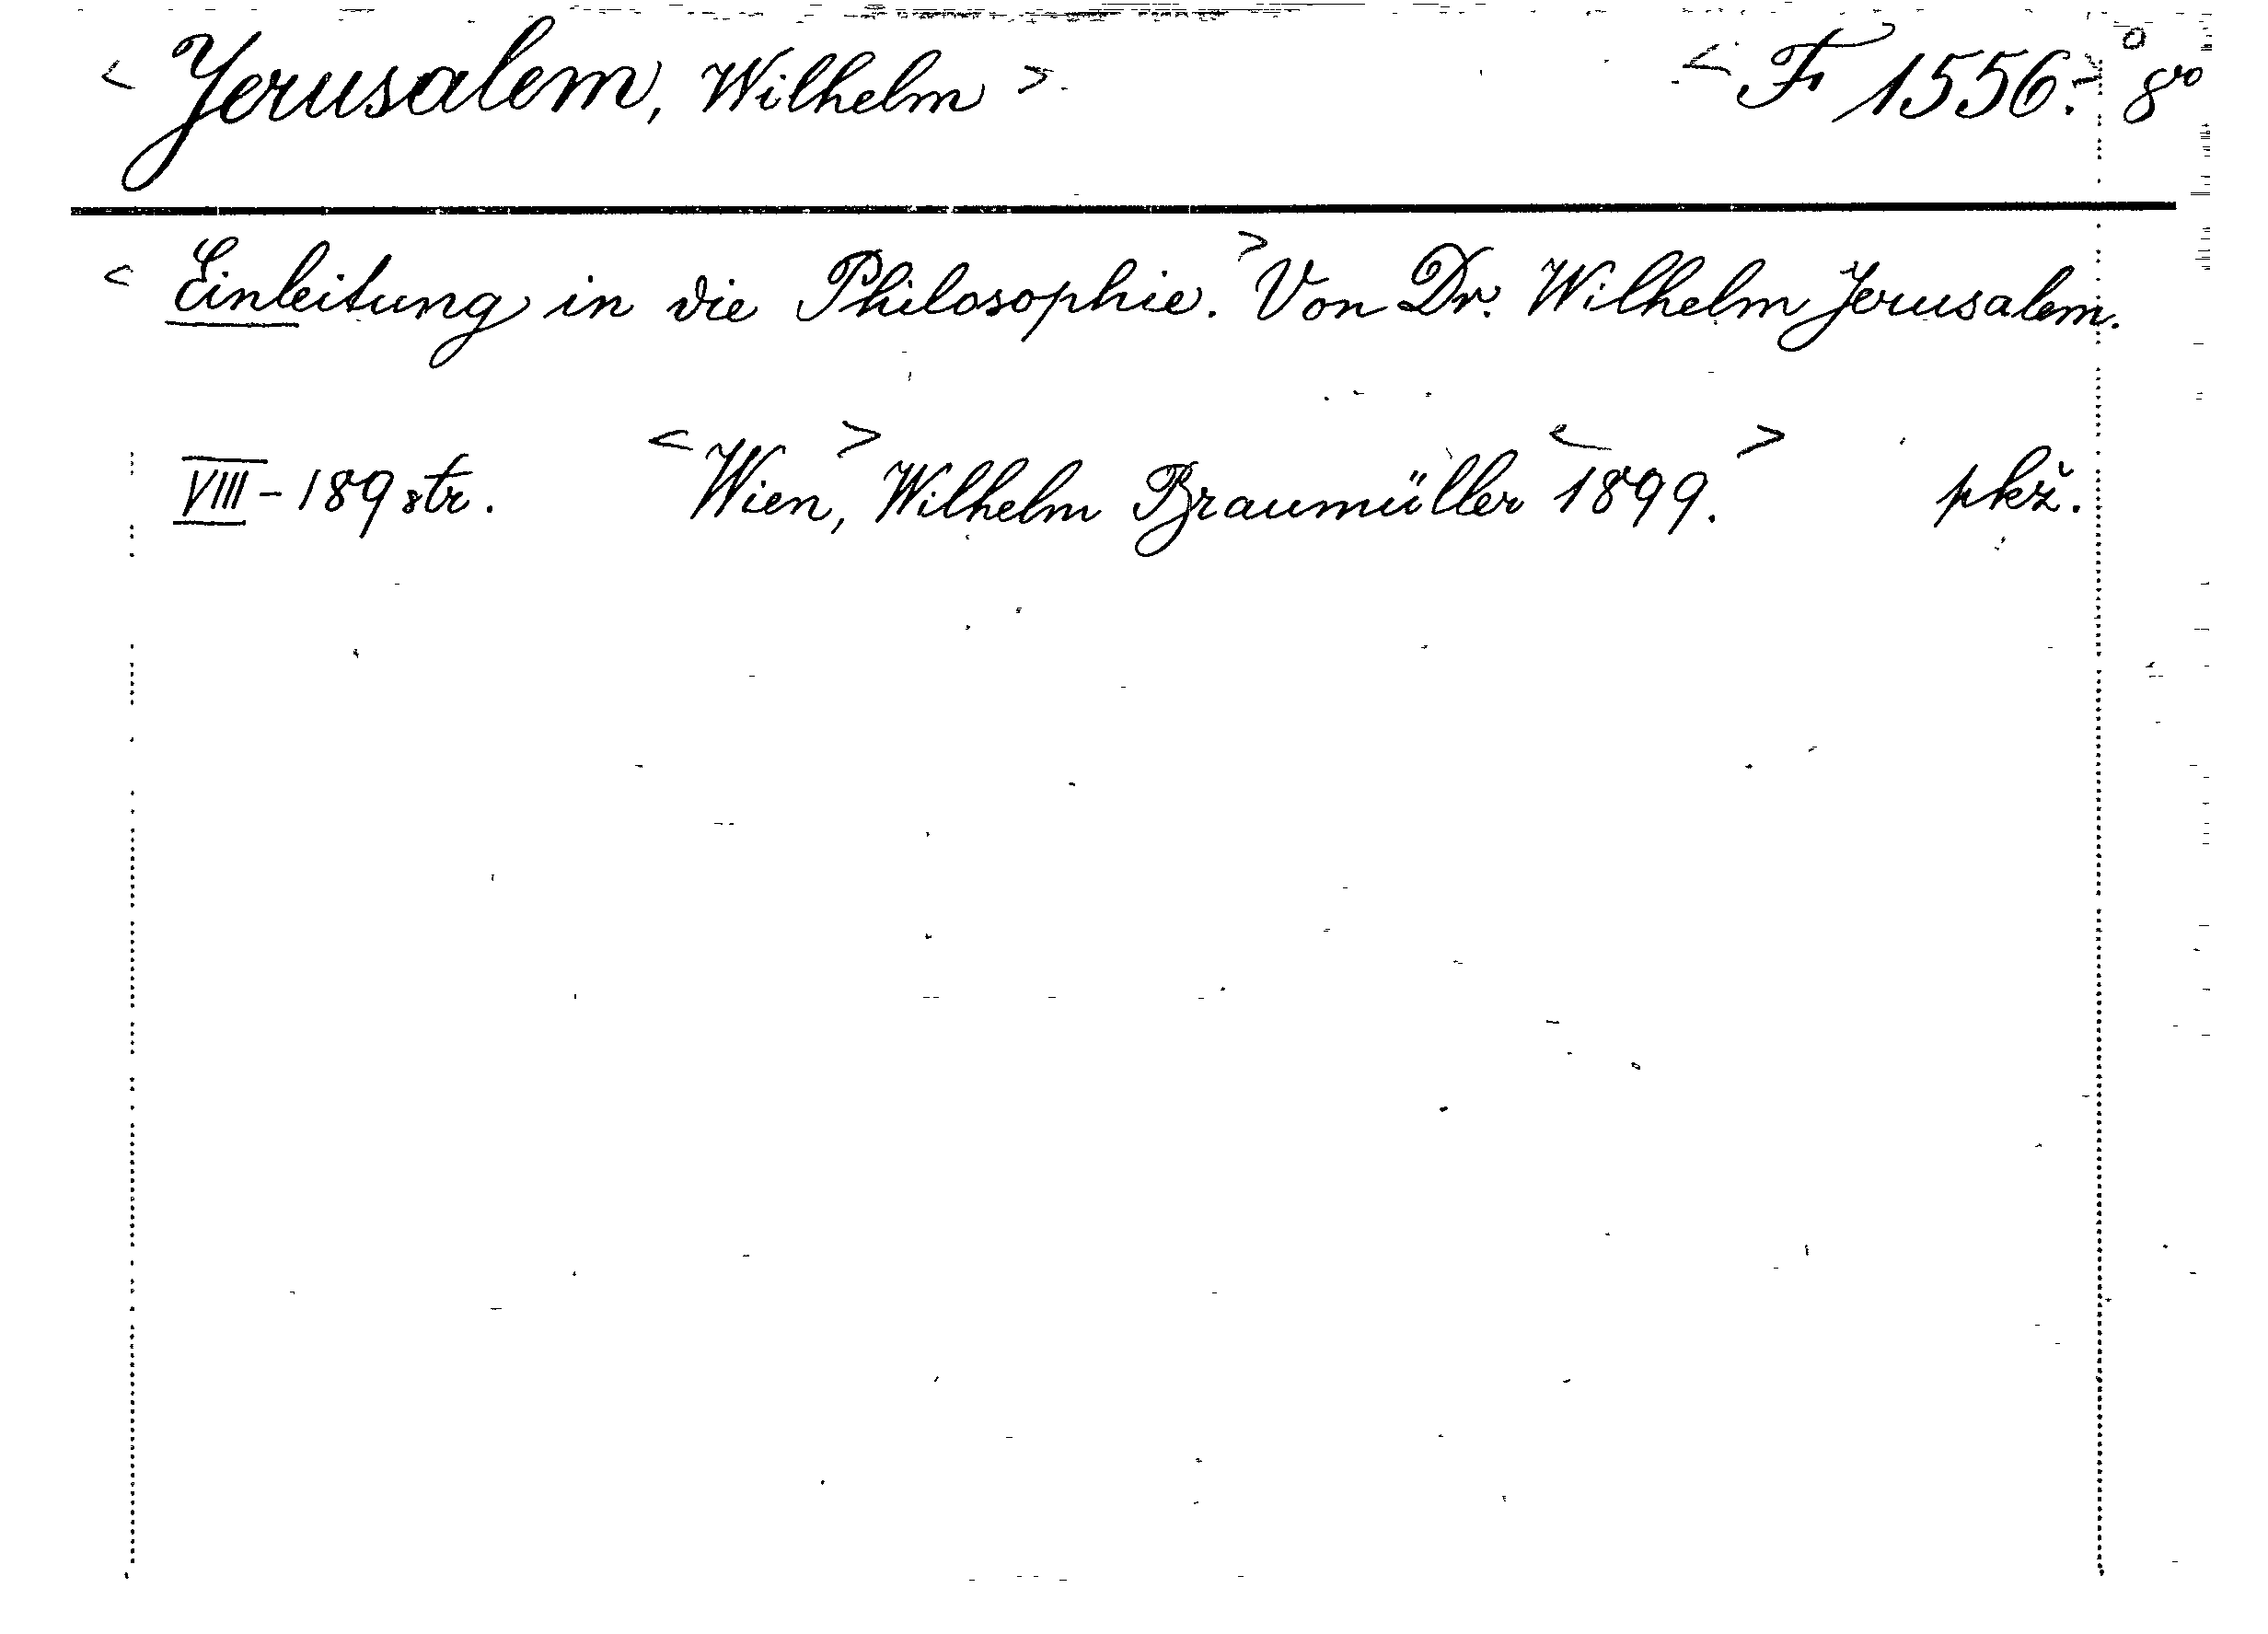 < Jerusalem, Wilhelm > < F 1556. > 8vo
< Einleitung in die Philosophie. > Von Dr. Wilhelm Jerusalem.
VIII - 189 str. < Wien, > Wilhelm Braumüller < 1899. > pkž.